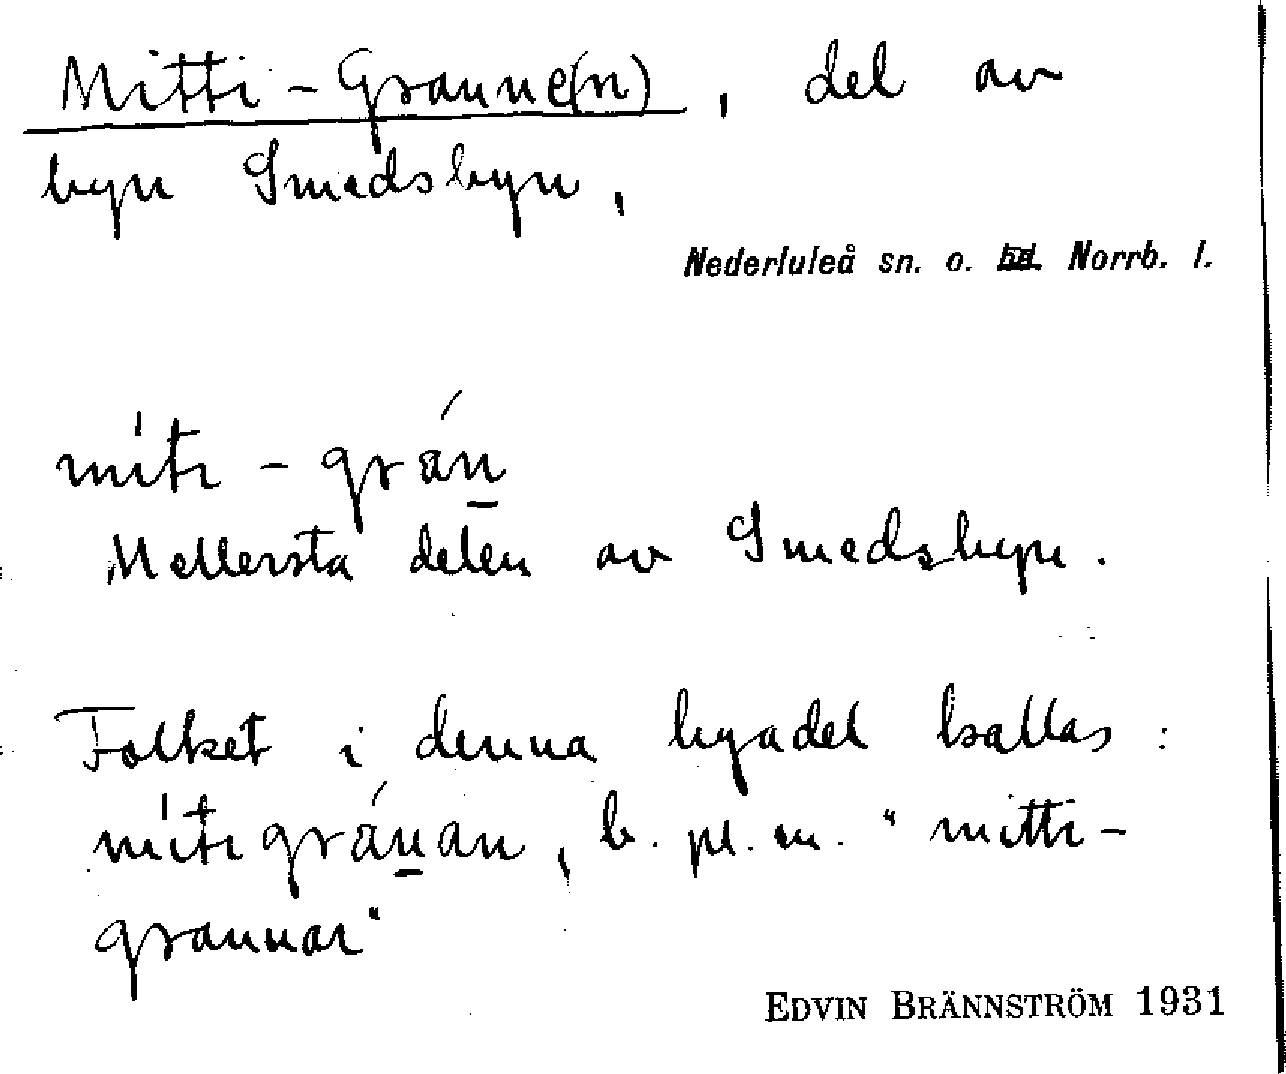 Mitti-Granne(n), del av
byn Smedsbyn,
Nederluleå sn. o. hd. Norrb. l.
míti-grán̲
Mellersta delen av Smedsbyn.
Folket i denna byadel kallas:
mítigrán̲an, b. pl. m. "mitti-
grannar"
EDVIN BRÄNNSTRÖM 1931